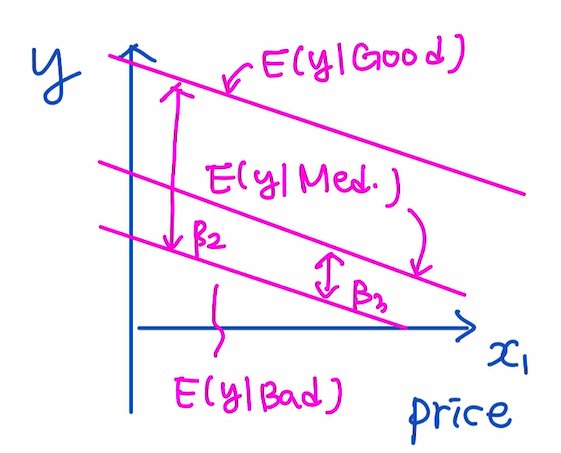 y
E(y|Good)
E(y|Med.)
β₂
β₃
E(y|Bad)
x₁
price